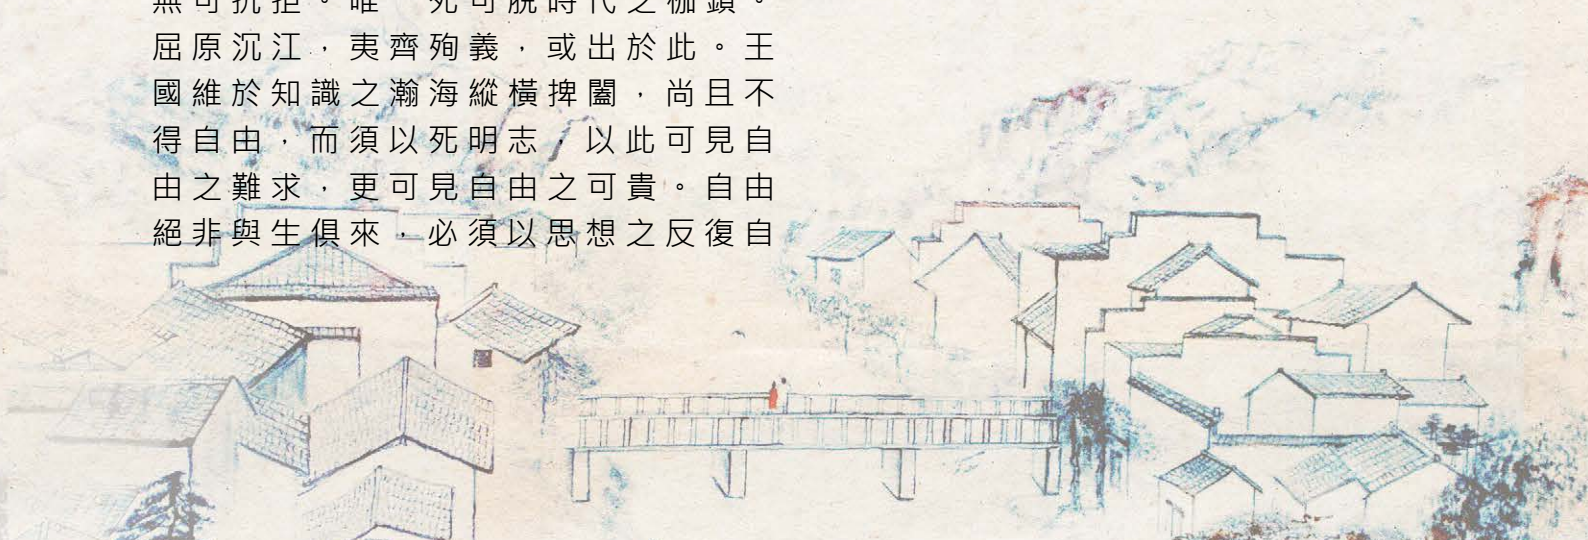 無可抗拒。唯一死可脫時代之枷鎖。
屈原沉江，夷齊殉義，或出於此。王
國維於知識之瀚海縱橫捭闔，尚且不
得自由，而須以死明志，以此可見自
由之難求，更可見自由之可貴。自由
絕非與生俱來，必須以思想之反復自